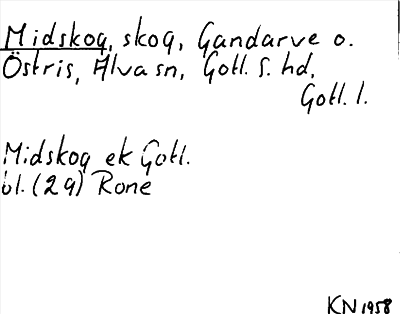 Midskog, skog, Gandarve o.
Östris, Alva sn, Gotl. S. hd,
Gotl. l.
Midskog ek Gotl.
bl. (29) Rone
KN 1958